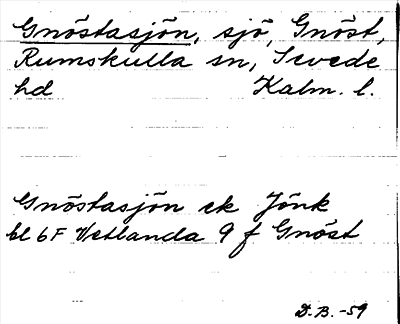 Gnöstasjön, sjö, Gnöst,
Rumskulla sn, Sevede
hd Kalm. l.
Gnöstasjön ek Jönk
bl 6F Vetlanda 9 f Gnöst
D.B. -59